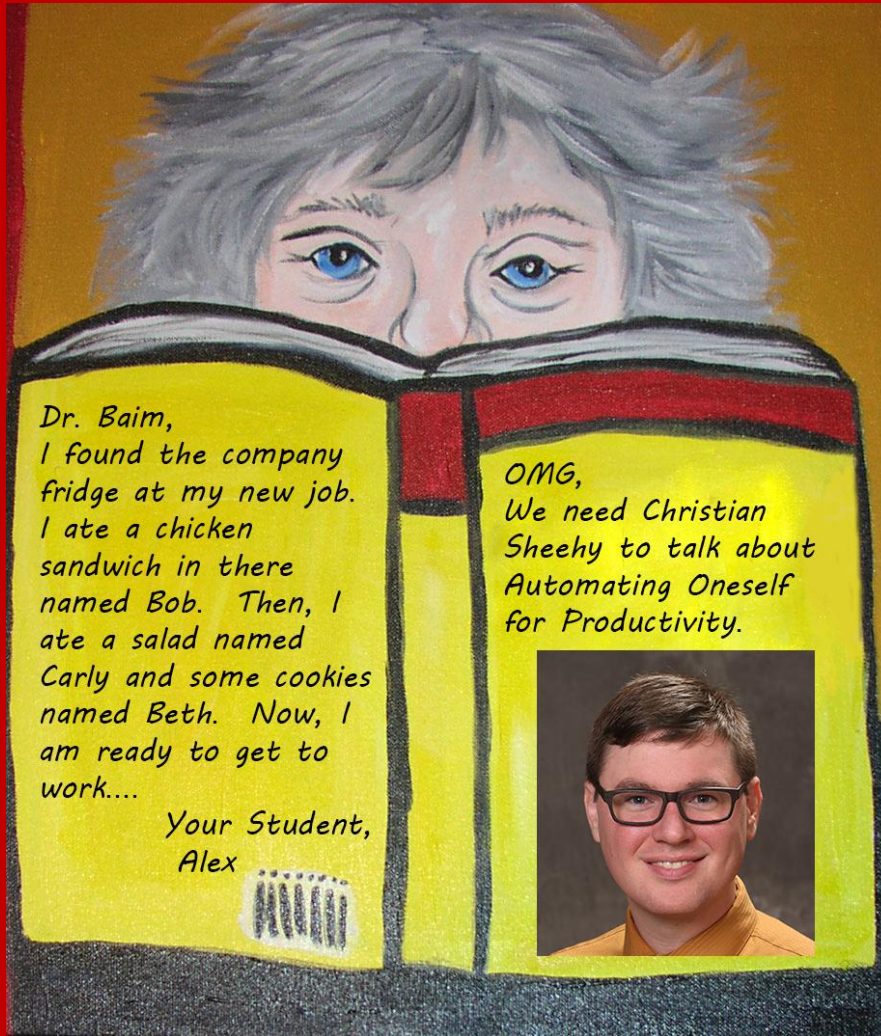 Dr. Baim,
I found the company
fridge at my new job.
I ate a chicken
sandwich in there
named Bob.  Then, I
ate a salad named
Carly and some cookies
named Beth.  Now, I
am ready to get to
work....
Your Student,
Alex
OMG,
We need Christian
Sheehy to talk about
Automating Oneself
for Productivity.